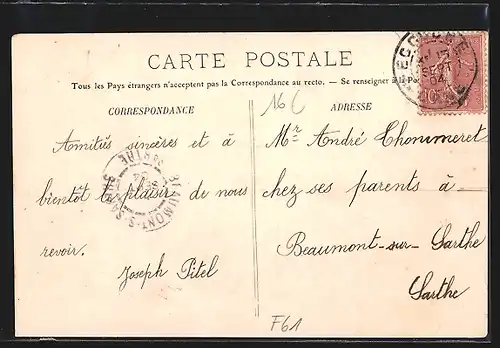 CARTE POSTALE
Tous les Pays étrangers n'acceptent pas la Correspondance au recto. — Se renseigner à la Pos
CORRESPONDANCE
ADRESSE
16
Amitiés sincères et à
bientôt le plaisir de nous
revoir.
Joseph Pitel
Mr André Thommeret
chez ses parents à -
Beaumont-sur-Sarthe
Sarthe
F61
BEAUMONT-S-SARTHE
10